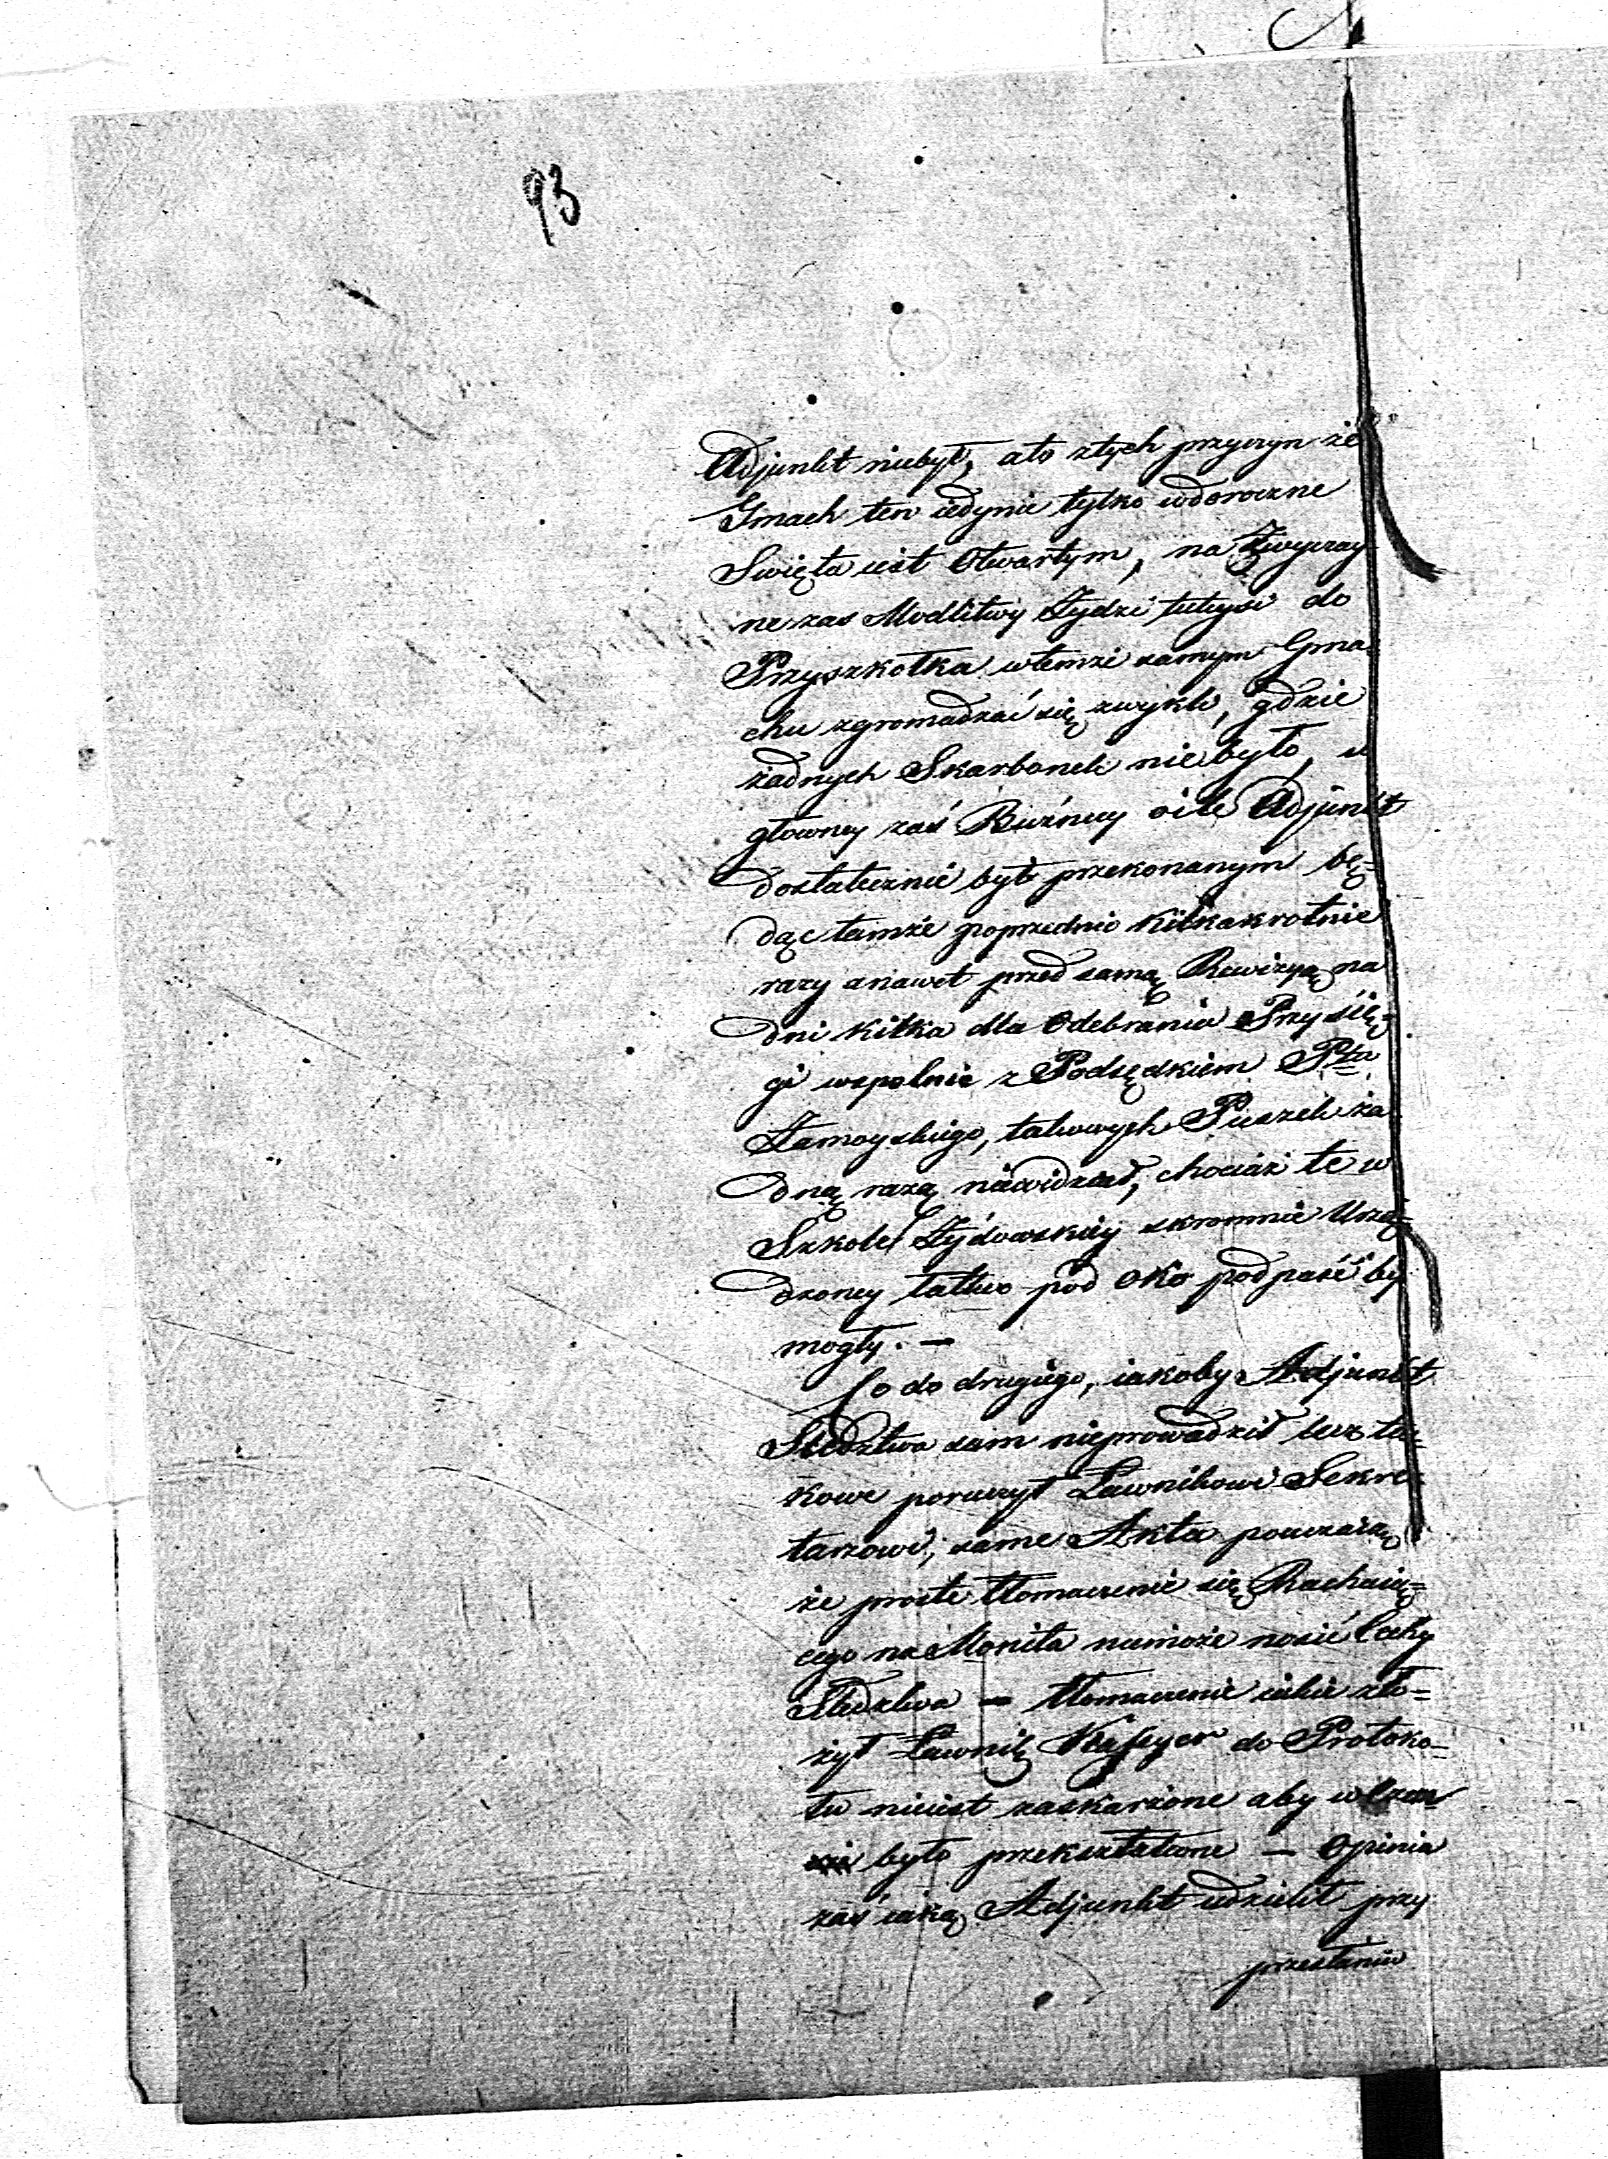 93
Adjunkt niebył, ato ztych przyczyn że
Gmach ten iedynie tylko wdoroczne
Swięta iest Otwartym, na Zwyczay-
ne zas Modlitwy Żydzi tuteysi do
Przyszkołka wtemże samym Gma-
chu zgromadzać się zwykli, gdzie
żadnych Skarbonek nie było, w
głowney zaś Bużnicy oile Adjunkt
dostatecznie było przekonanym bę=
dąc tamże poprzednio kilkakrotnie
razy anawet przed samą Rewizyą na
dni kilka dla Odebrania Przysię=
gi wspolnie z Podsędkiem Pttu
Zamoyskiego, takowych Puszek ża
dną razą niewidział, chociaż te w
Szkole Żydowskiey skromnie Urzą=
dzoney łatwo pod oko podpaść by
mogły. —
Co do drugiego, iakoby Adjunkt
Sledztwa sam nieprowadził lecz ta=
kowe poruczył Ławnikowi Sekre-
tarzowi, same Akta pouczaią
że proste tłomaczenie się Rachuią=
cego na Monita niemoże nosić Cechy
Sledztwa — tłomaczenie iakie zło=
żył Ławnik do Protoko-
łu nieiest zaskarżone aby w
było przekształcone — Opinia
zaś iaką Adjunkt udzielił przy
przesłaniu